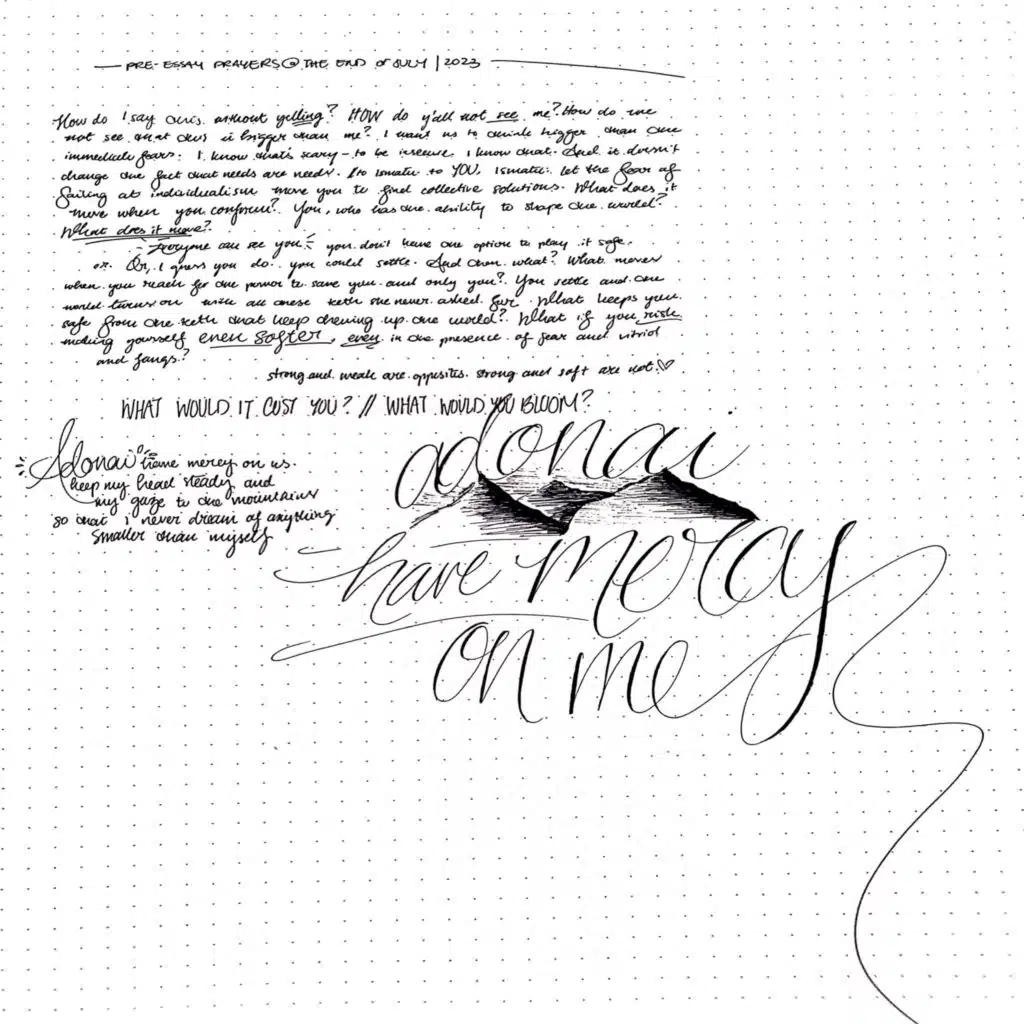 PRE-ESSAY PRAYERS @ THE END OF JULY | 2023
How do I say this without yelling? HOW do y'all not see me? How do we
not see that this is bigger than me? I want us to think bigger than the
immediate fears. I know that's scary - to be insecure. I know that. And it doesn't
change the fact that needs are needs. I to YOU, let the fear of
failing at individualism move you to find collective solutions. What does it
move when you conform? You, who has the ability to shape the world?
What does it move?
Everyone can see you you don't have the option to play it safe.
or. Or, I guess you do. you could settle. And then what? What moves
when you reach for the power to save you and only you? You settle and the
world turns on with all these teeth she never asked for. What keeps you
safe from the teeth that keep chewing up the world? What if you risk
making yourself even softer, even in the presence of fear and vitriol
and fangs?
strong and weak are opposites. strong and soft are not. ♡
WHAT WOULD IT COST YOU? // WHAT WOULD YOU BLOOM?
Adonai have mercy on us.
keep my head steady and
my gaze to the mountains
so that I never dream of anything
smaller than myself
adonai
have mercy
on me